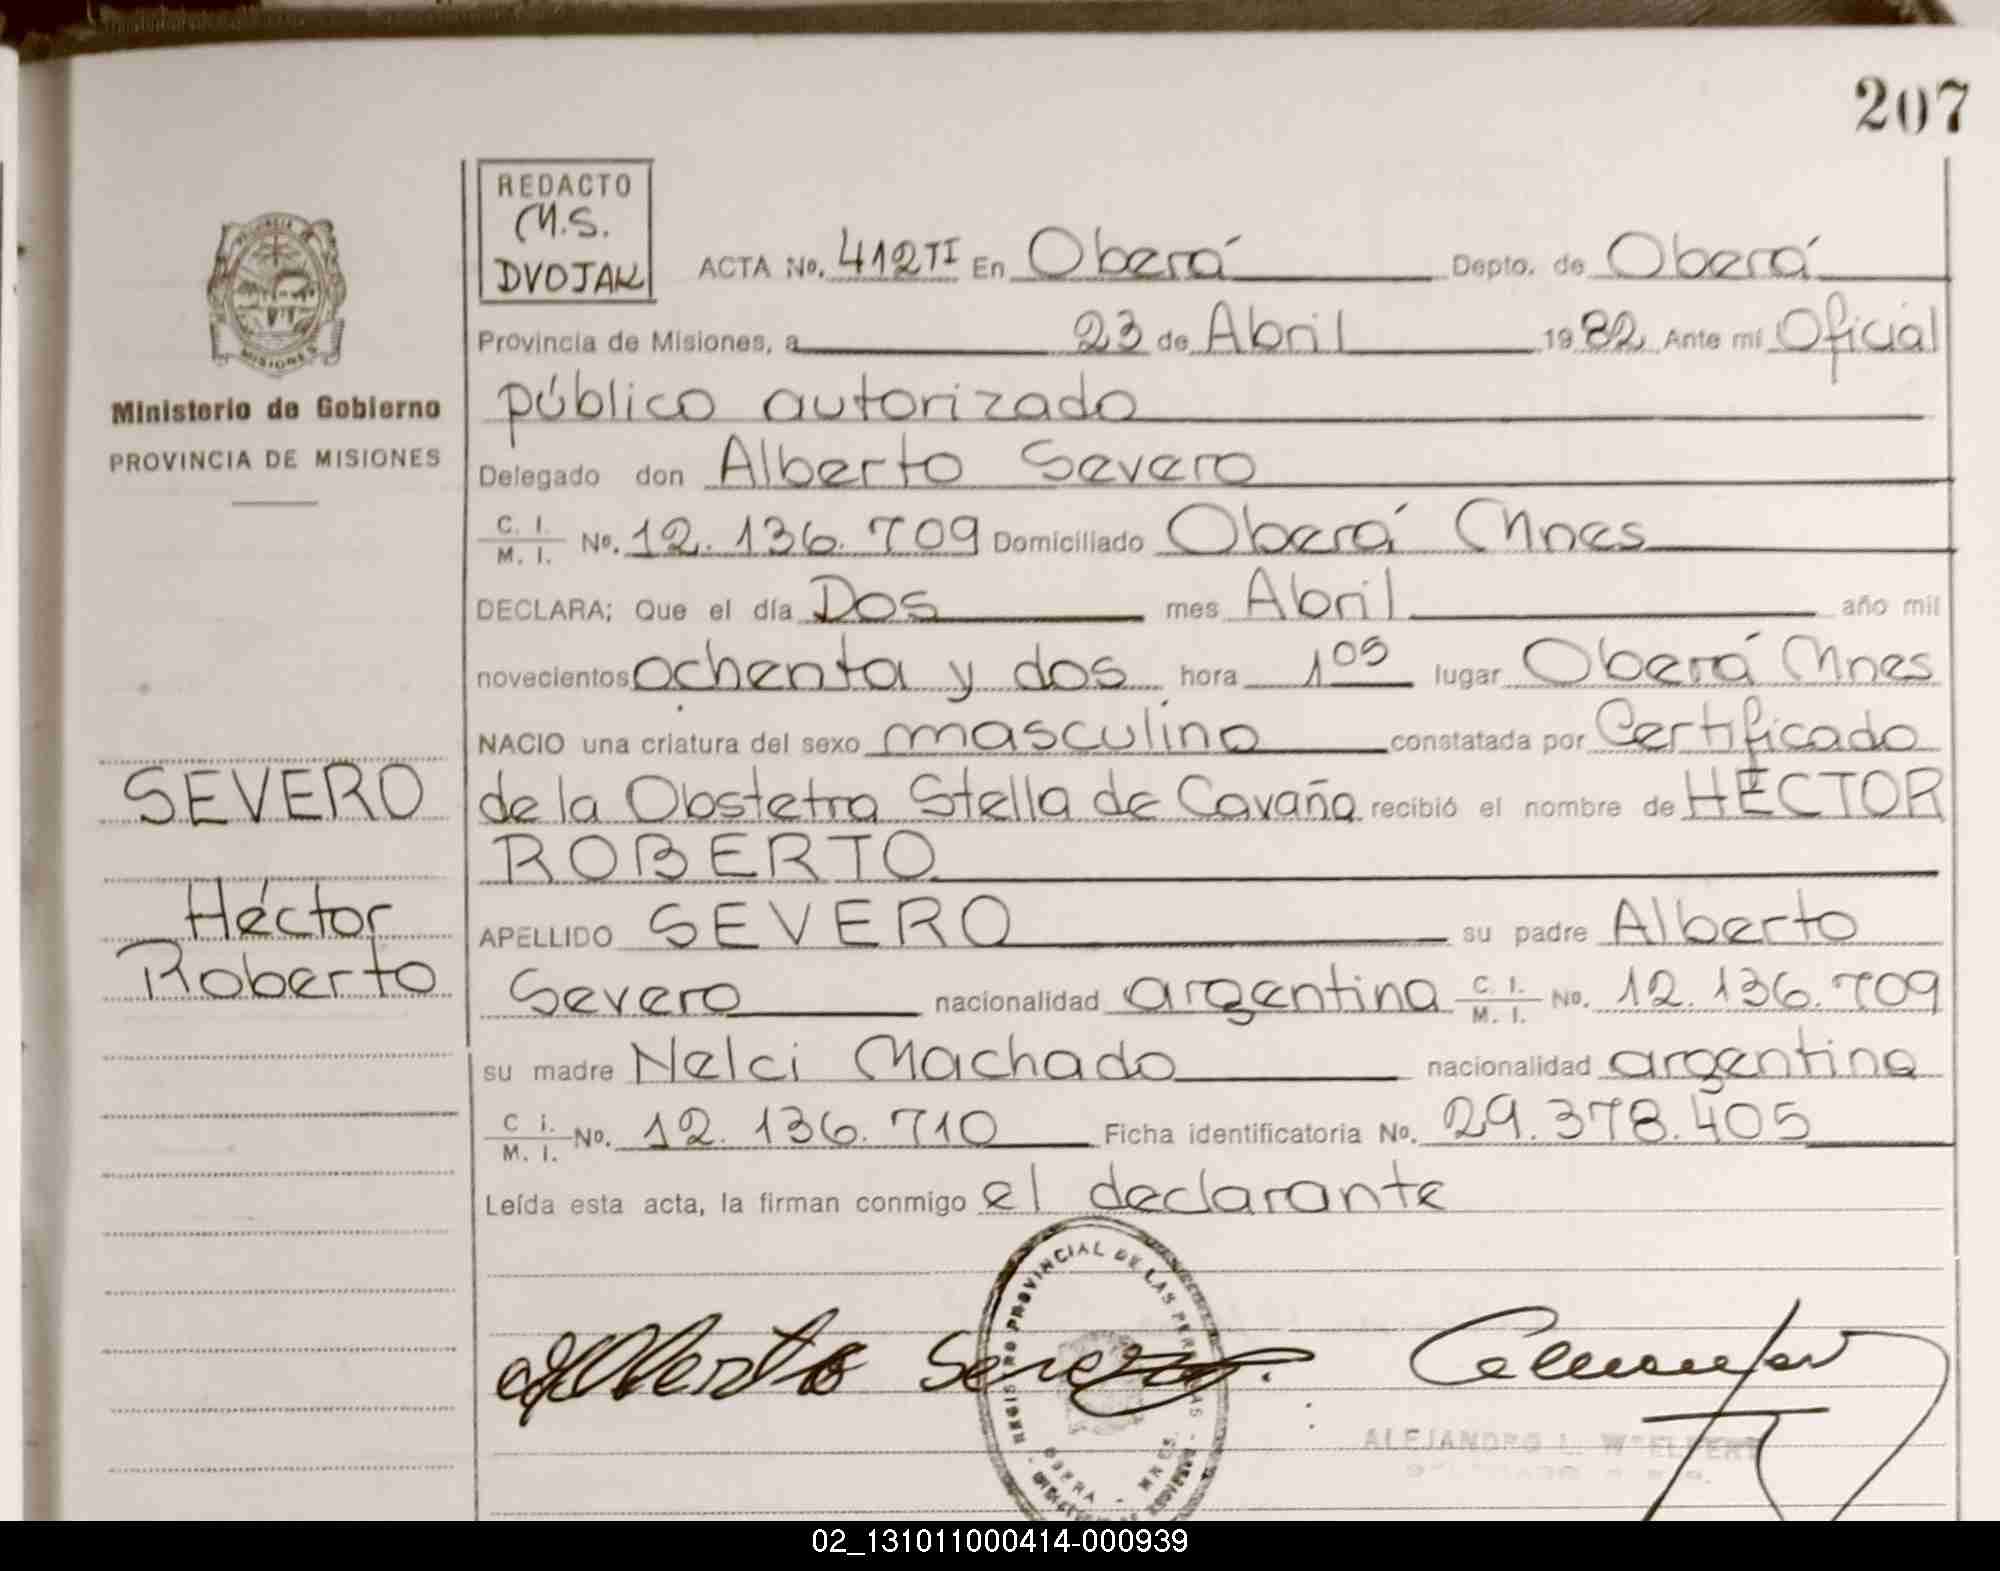 207
PROVINCIA DE
MISIONES
Ministerio de Gobierno
PROVINCIA DE MISIONES
SEVERO
Héctor
Roberto
REDACTO
M.S.
DVOJAK
ACTA No. 412 TI En Oberá Depto. de Oberá
Provincia de Misiones, a 23 de Abril 1982 Ante mí Oficial
público autorizado
Delegado don Alberto Severo
C. I. / M. I. No. 12.136.709 Domiciliado Oberá Mnes
DECLARA; Que el día Dos mes Abril año mil
novecientos ochenta y dos hora 1 05 lugar Oberá Mnes
NACIO una criatura del sexo masculino constatada por Certificado
de la Obstetra Stella de Cavaña recibió el nombre de HÉCTOR
ROBERTO
APELLIDO SEVERO su padre Alberto
Severo nacionalidad argentina C. I. / M. I. No. 12.136.709
su madre Nelci Machado nacionalidad argentina
C i. / M. I. No. 12.136.710 Ficha identificatoria No. 29.378.405
Leída esta acta, la firman conmigo el declarante
Alberto Severo
REGISTRO PROVINCIAL DE LAS PERSONAS
OBERA - MNES.
ALEJANDRO L.
02_131011000414-000939